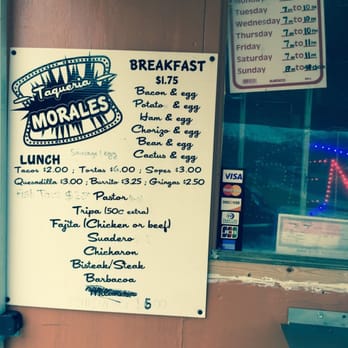 Taqueria
MORALES
BREAKFAST
$1.75
Bacon & egg
Potato & egg
Ham & egg
Chorizo & egg
Bean & egg
Cactus & egg
Sausage & egg
LUNCH
Tacos $2.00 ; Tortas $6.00 ; Sopes $3.00
Quesadilla $3.00 ; Burrito $3.25 ; Gringas $2.50
Pastor
Tripa (50¢ extra)
Fajita (Chicken or beef)
Suadero
Chicharon
Bisteak/Steak
Barbacoa
5
Monday
Tuesday 7am to 10pm
Wednesday 7am to 10pm
Thursday
Friday
Saturday
Sunday
VISA
MasterCard
JCB